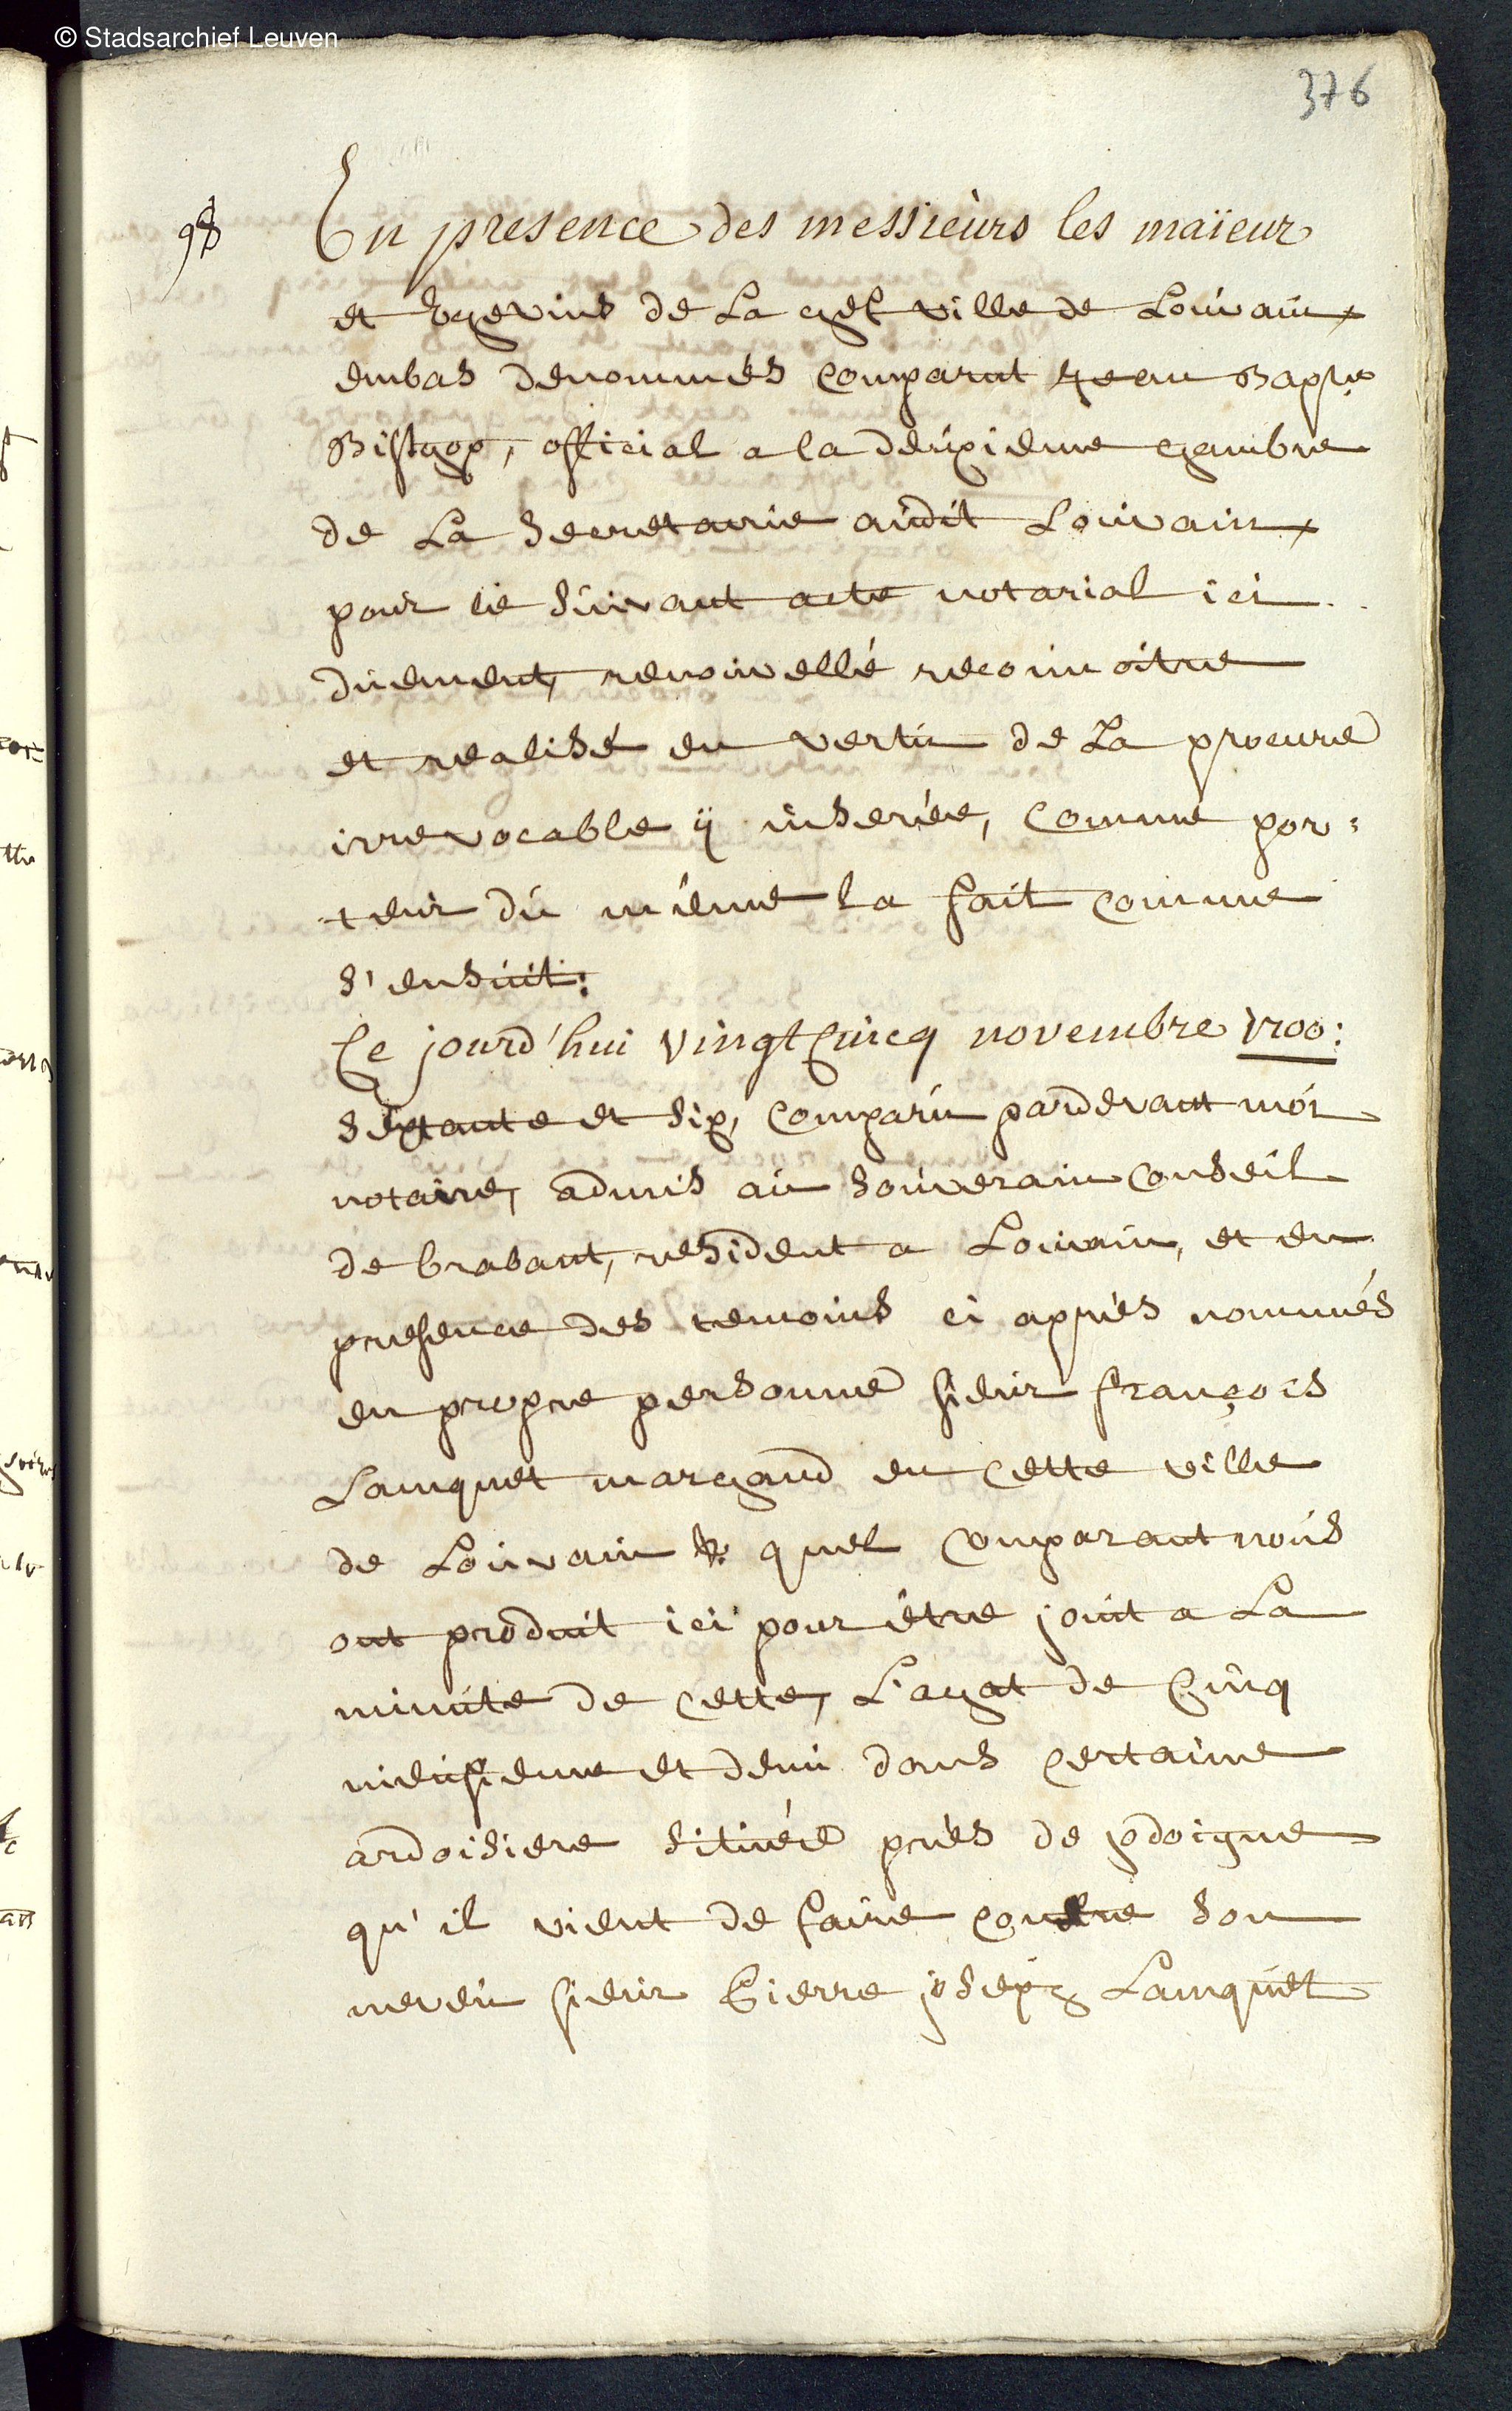 © Stadsarchief Leuven
376
98
En presence des messieurs les maïeur
et Echevins de La chef ville de Louvain
embas denommés Comparut Jean Bapte
Bisschop, official a la deuxieme chambre
de La Secretarie audit Louvain
pour le suivant acte notarial ici
duement, renouvellé reconnoitre
et realisé en vertu de La procure
irrevocable ÿ inserée, Comme por=
teur du méme la fait Comme
s'ensuit:
Ce jourd'hui vingt Cincq novembre 1700:
septante et six, Comparu pardevant moi
notaire, admis au souverain Conseil
de brabant, resident a Louvain, et en
presence des temoins ci aprés nommés
en propre personne sieur françois
Lamquet marchand en cette ville
de Louvain quel Comparant nous
ont produit ici pour étre joint a La
minute de Cette, L'achat de Cinq
et demi dans Certaine
ardoisiere situéé prés de
qu'il vient de faire contre son
neveu sieur Pierre joseph Lamquet